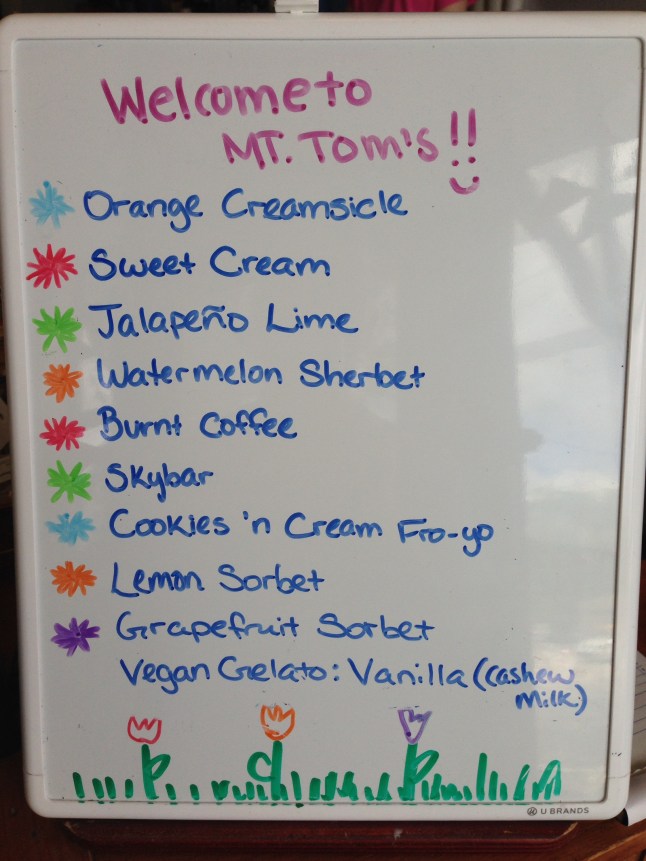 Welcome to
MT. Tom's!!
Orange Creamsicle
Sweet Cream
Jalapeño Lime
Watermelon Sherbet
Burnt Coffee
Skybar
Cookies 'n Cream Fro-yo
Lemon Sorbet
Grapefruit Sorbet
Vegan Gelato: Vanilla (cashew
milk)
U BRANDS